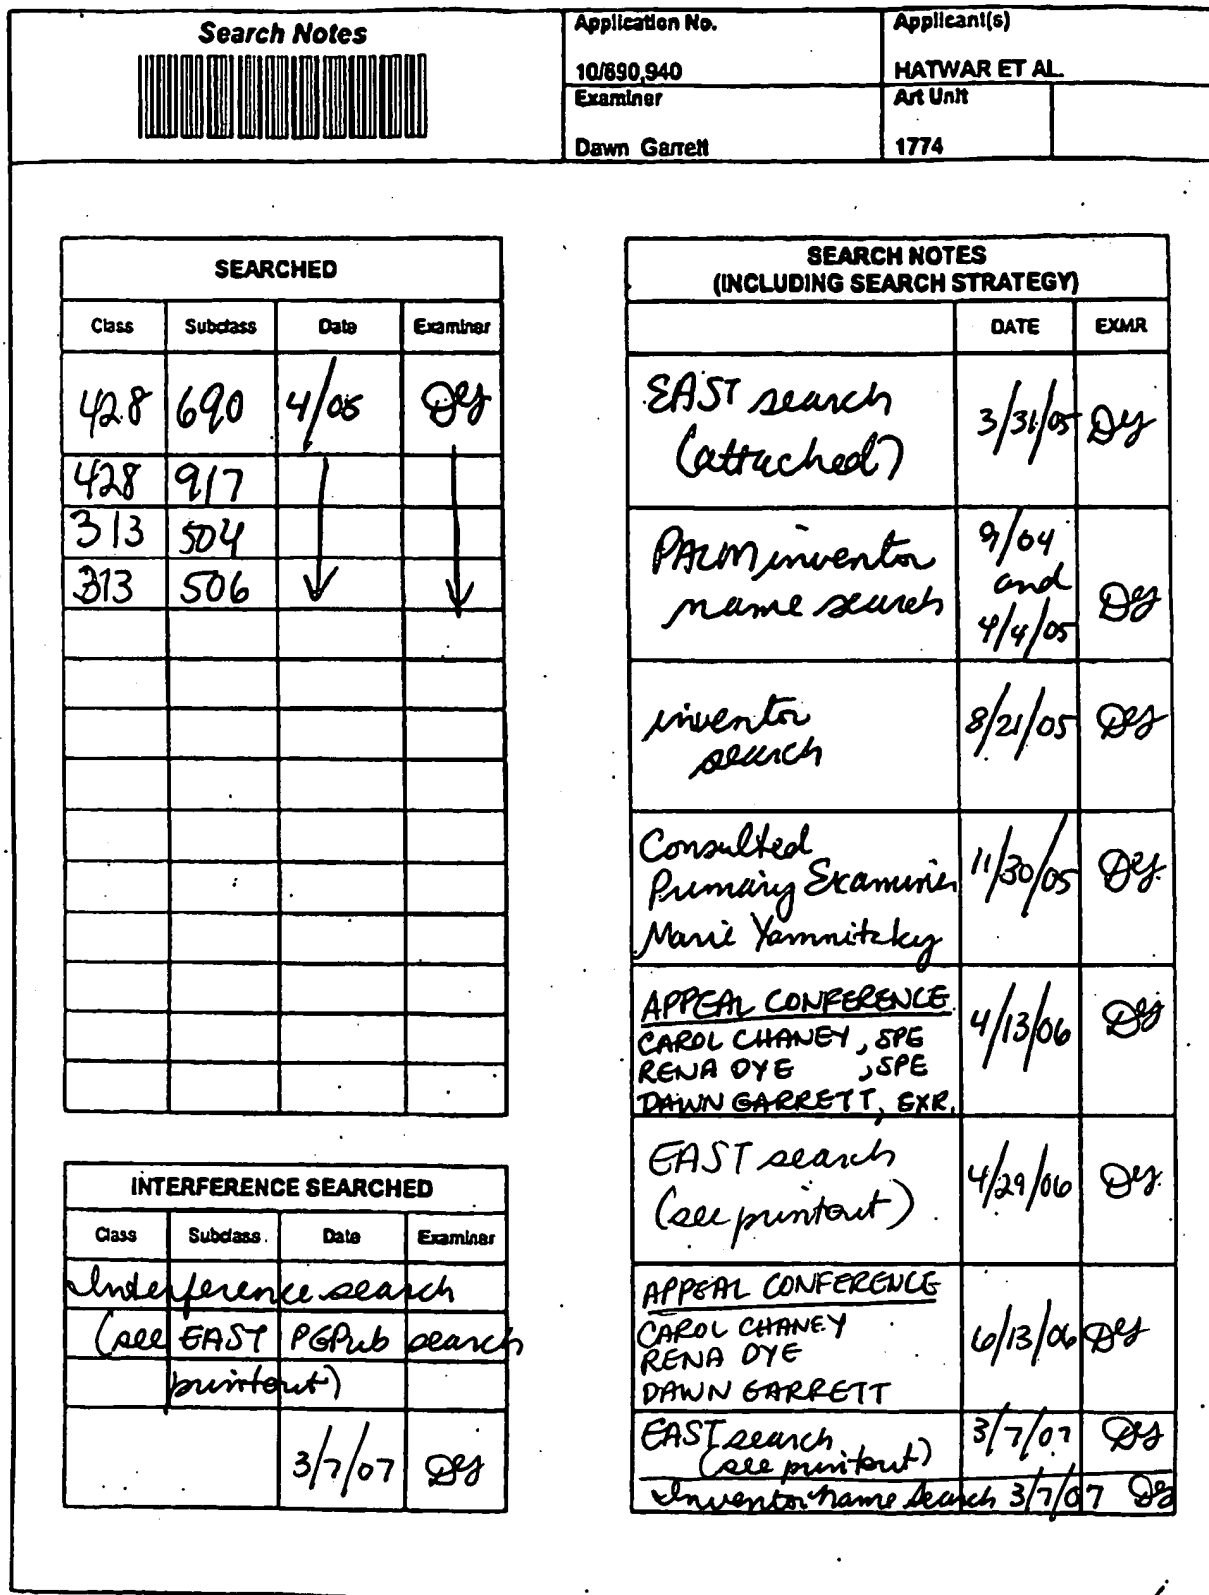 Search Notes
Application No.
10/690,940
Applicant(s)
HATWAR ET AL.
Examiner
Dawn Garrett
Art Unit
1774
SEARCHED
Class Subclass Date Examiner
428 690 4/05 DG
428 917
313 504
313 506
INTERFERENCE SEARCHED
Class Subclass Date Examiner
Interference search
(see EAST PGPub search
printout)
3/7/07 DG
SEARCH NOTES
(INCLUDING SEARCH STRATEGY)
DATE EXMR
EAST search
(attached)
3/31/05 DG
PALM inventor
name search
9/04
and
4/4/05
DG
inventor
search
8/21/05 DG
Consulted
Primary Examiner
Marie Yamnitzky
11/30/05 DG
APPEAL CONFERENCE
CAROL CHANEY, SPE
RENA DYE , SPE
DAWN GARRETT, EXR.
4/13/06 DG
EAST search
(see printout)
4/29/06 DG
APPEAL CONFERENCE
CAROL CHANEY
RENA DYE
DAWN GARRETT
6/13/06 DG
EAST search
(see printout)
3/7/07 DG
Inventor name search 3/7/07 DG